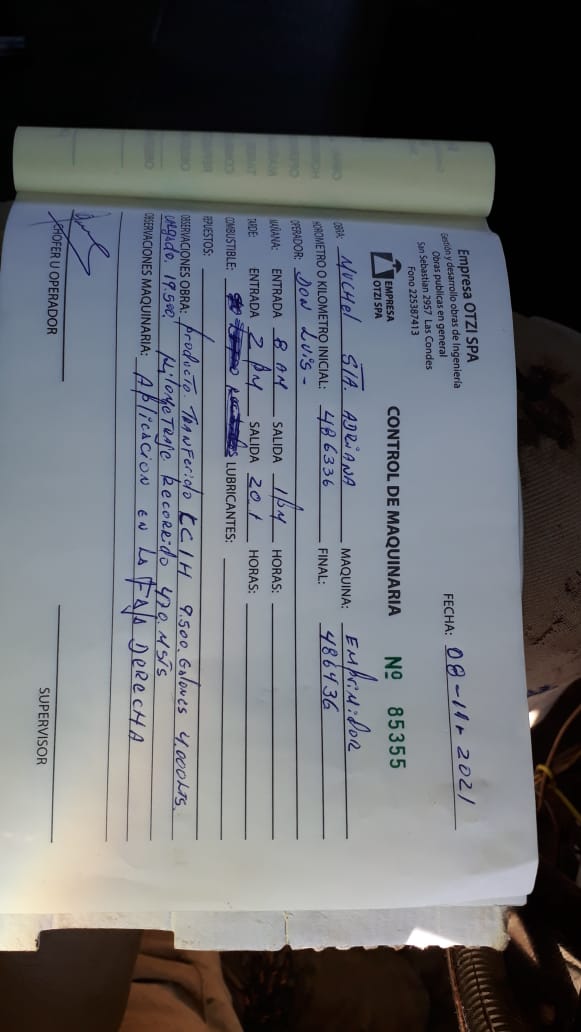 Empresa OTZI SPA
Gestión y desarrollo obras de Ingeniería
Obras publicas en general
San Sebastian 2957 Las Condes
Fono 225387413
EMPRESA
OTZI SPA
FECHA: 08-11- 2021
CONTROL DE MAQUINARIA Nº 85355
OBRA: MUCHEL STA. ADRIANA MAQUINA: EMPRIMIDOR
HOROMETRO O KILOMETRO INICIAL: 486336 FINAL: 486436
OPERADOR: DON LUIS-
MAÑANA: ENTRADA 8 AM SALIDA 1 PM HORAS:
TARDE: ENTRADA 2 PM SALIDA 20.1 HORAS:
COMBUSTIBLE: LUBRICANTES:
REPUESTOS:
OBSERVACIONES OBRA: producto TRANFERIDO 9.500 Galones 4.000 LTS.
19.500. KILOMETRAJE RECORRIDO 470 MSTS
OBSERVACIONES MAQUINARIA: APLICACION EN LA FAJA DERECHA
CHOFER U OPERADOR
SUPERVISOR